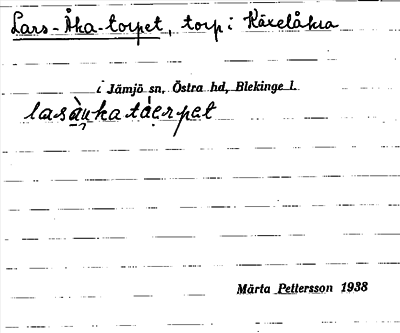 Lars-Åka-torpet, torp i Käxelåkra
i Jämjö sn, Östra hd, Blekinge l.
lasàu̯katáerpet
Märta Pettersson 1938